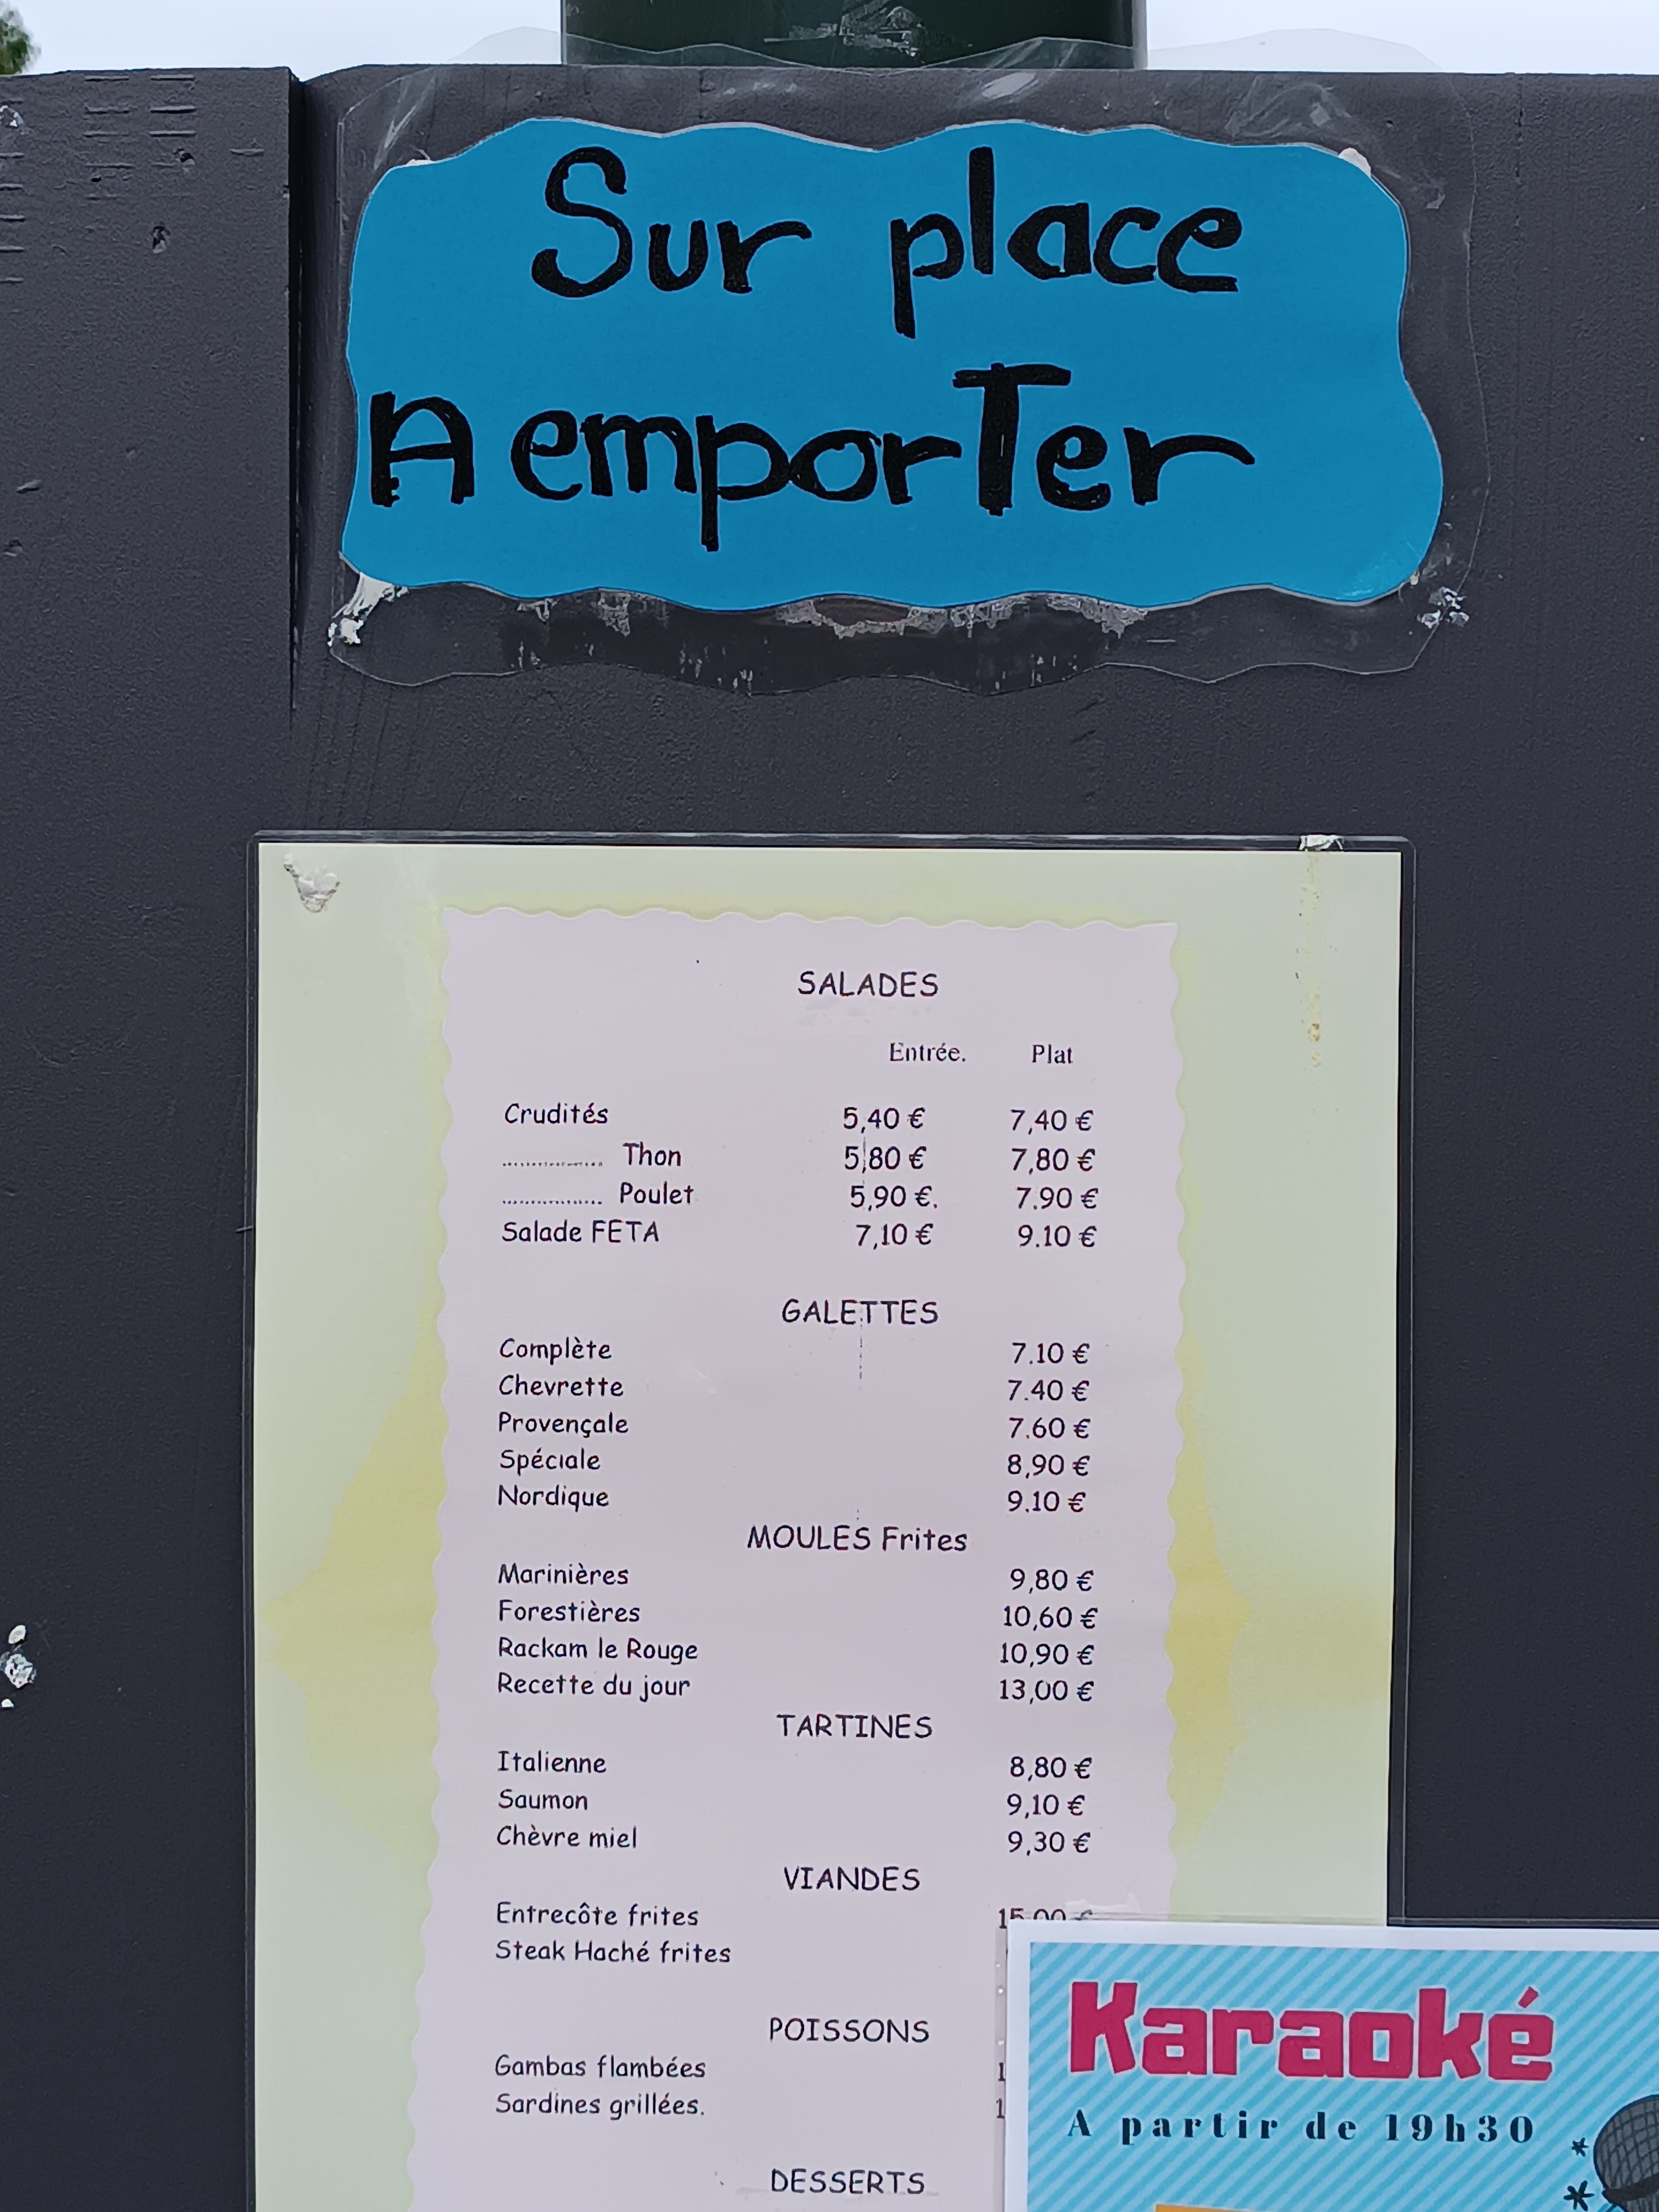 Sur place
A emporTer
SALADES
Entrée. Plat
Crudités 5,40 € 7,40 €
................ Thon 5,80 € 7,80 €
................ Poulet 5,90 €. 7.90 €
Salade FETA 7,10 € 9.10 €
GALETTES
Complète 7.10 €
Chevrette 7.40 €
Provençale 7.60 €
Spéciale 8,90 €
Nordique 9.10 €
MOULES Frites
Marinières 9,80 €
Forestières 10,60 €
Rackam le Rouge 10,90 €
Recette du jour 13,00 €
TARTINES
Italienne 8,80 €
Saumon 9,10 €
Chèvre miel 9,30 €
VIANDES
Entrecôte frites 15,00 €
Steak Haché frites
POISSONS
Gambas flambées
Sardines grillées.
DESSERTS
Karaoké
A partir de 19h30